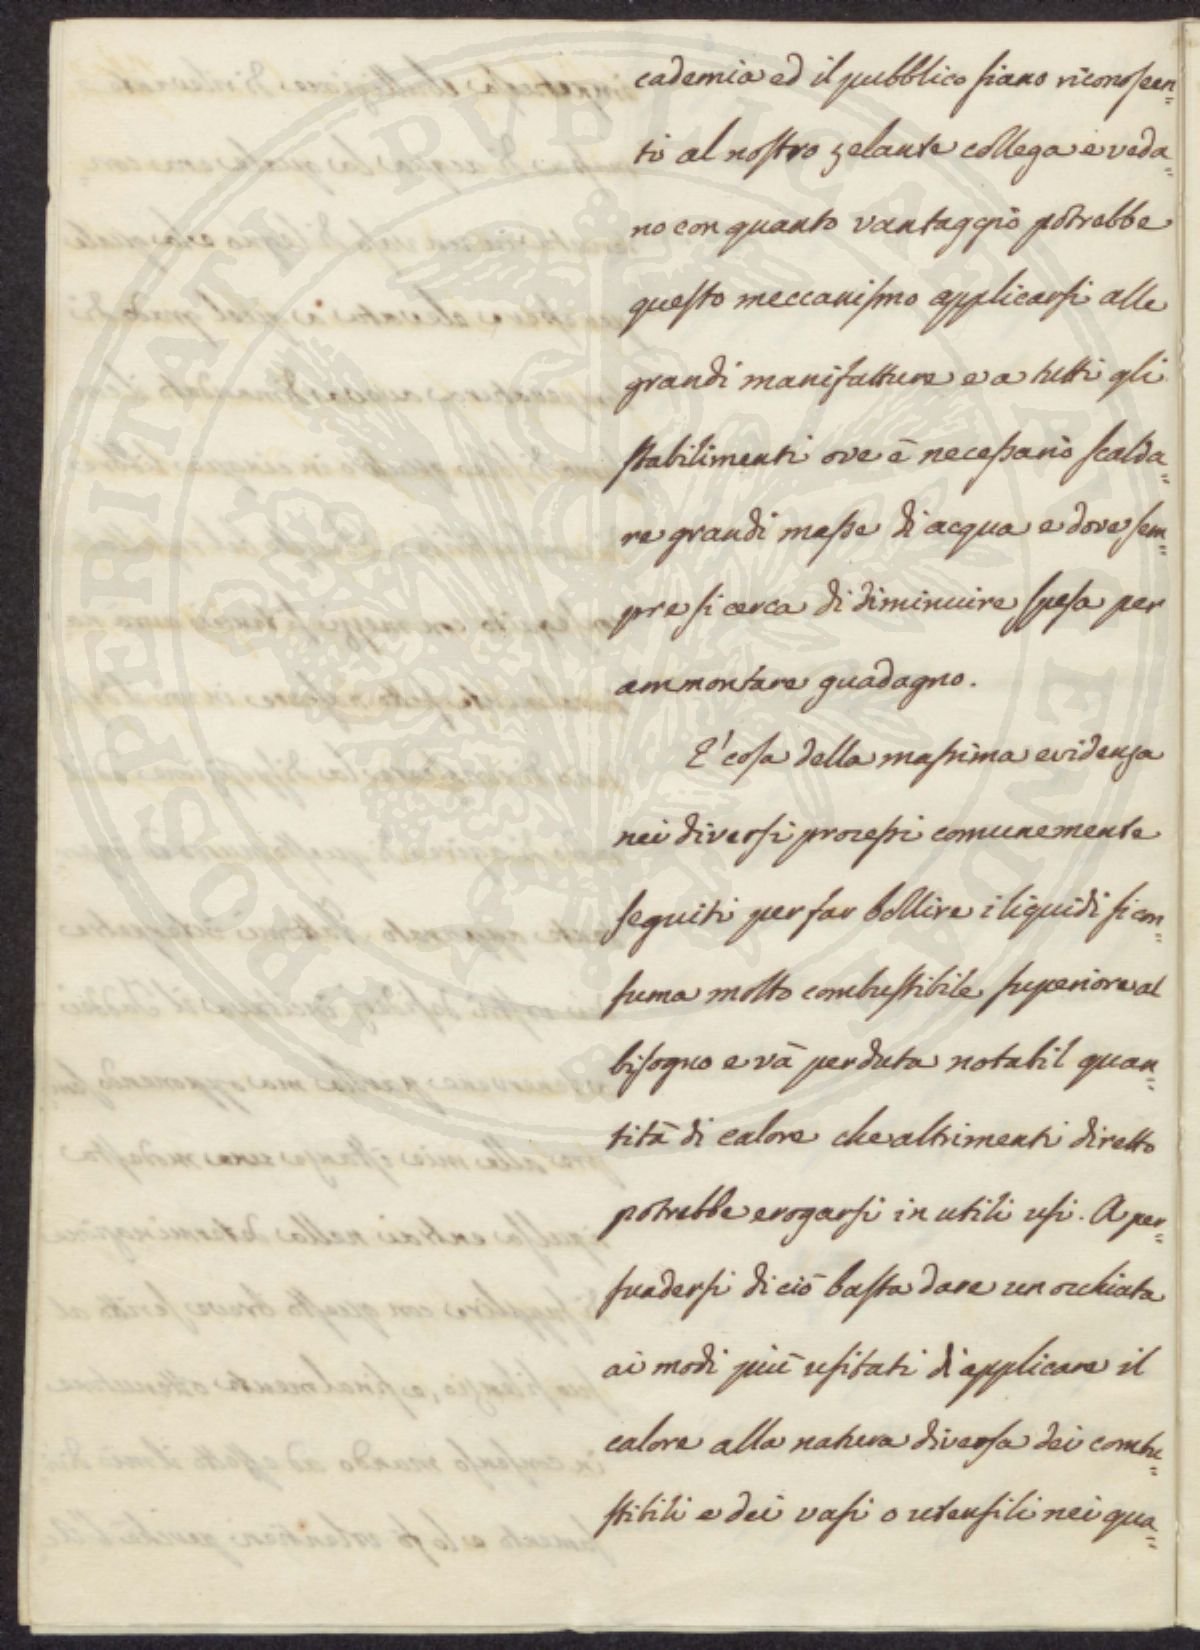 cademia ed il pubblico siano riconoscen=
ti al nostro zelante collega e veda=
no con quanto vantaggio potrebbe
questo meccanismo applicarsi alle
grandi manifatture e a tutti gli
stabilimenti ove è necessario scalda=
re grandi masse di acqua e dove sem=
pre si cerca di diminuire spesa per
ammontare guadagno.
E' cosa della massima evidenza
nei diversi processi comunemente
seguiti per far bollire i liquidi si con=
suma molto combustibile superiore al
bisogno e và perduta notabil quan=
tità di calore che altrimenti diretto
potrebbe erogarsi in utili usi. A per=
suadersi di ciò basta dare un occhiata
ai modi più usitati di applicare il
calore alla natura diversa dei combu=
stibili e dei vasi o utensili nei qua=
PROSPERITATI PUBLICAE AUGENDAE